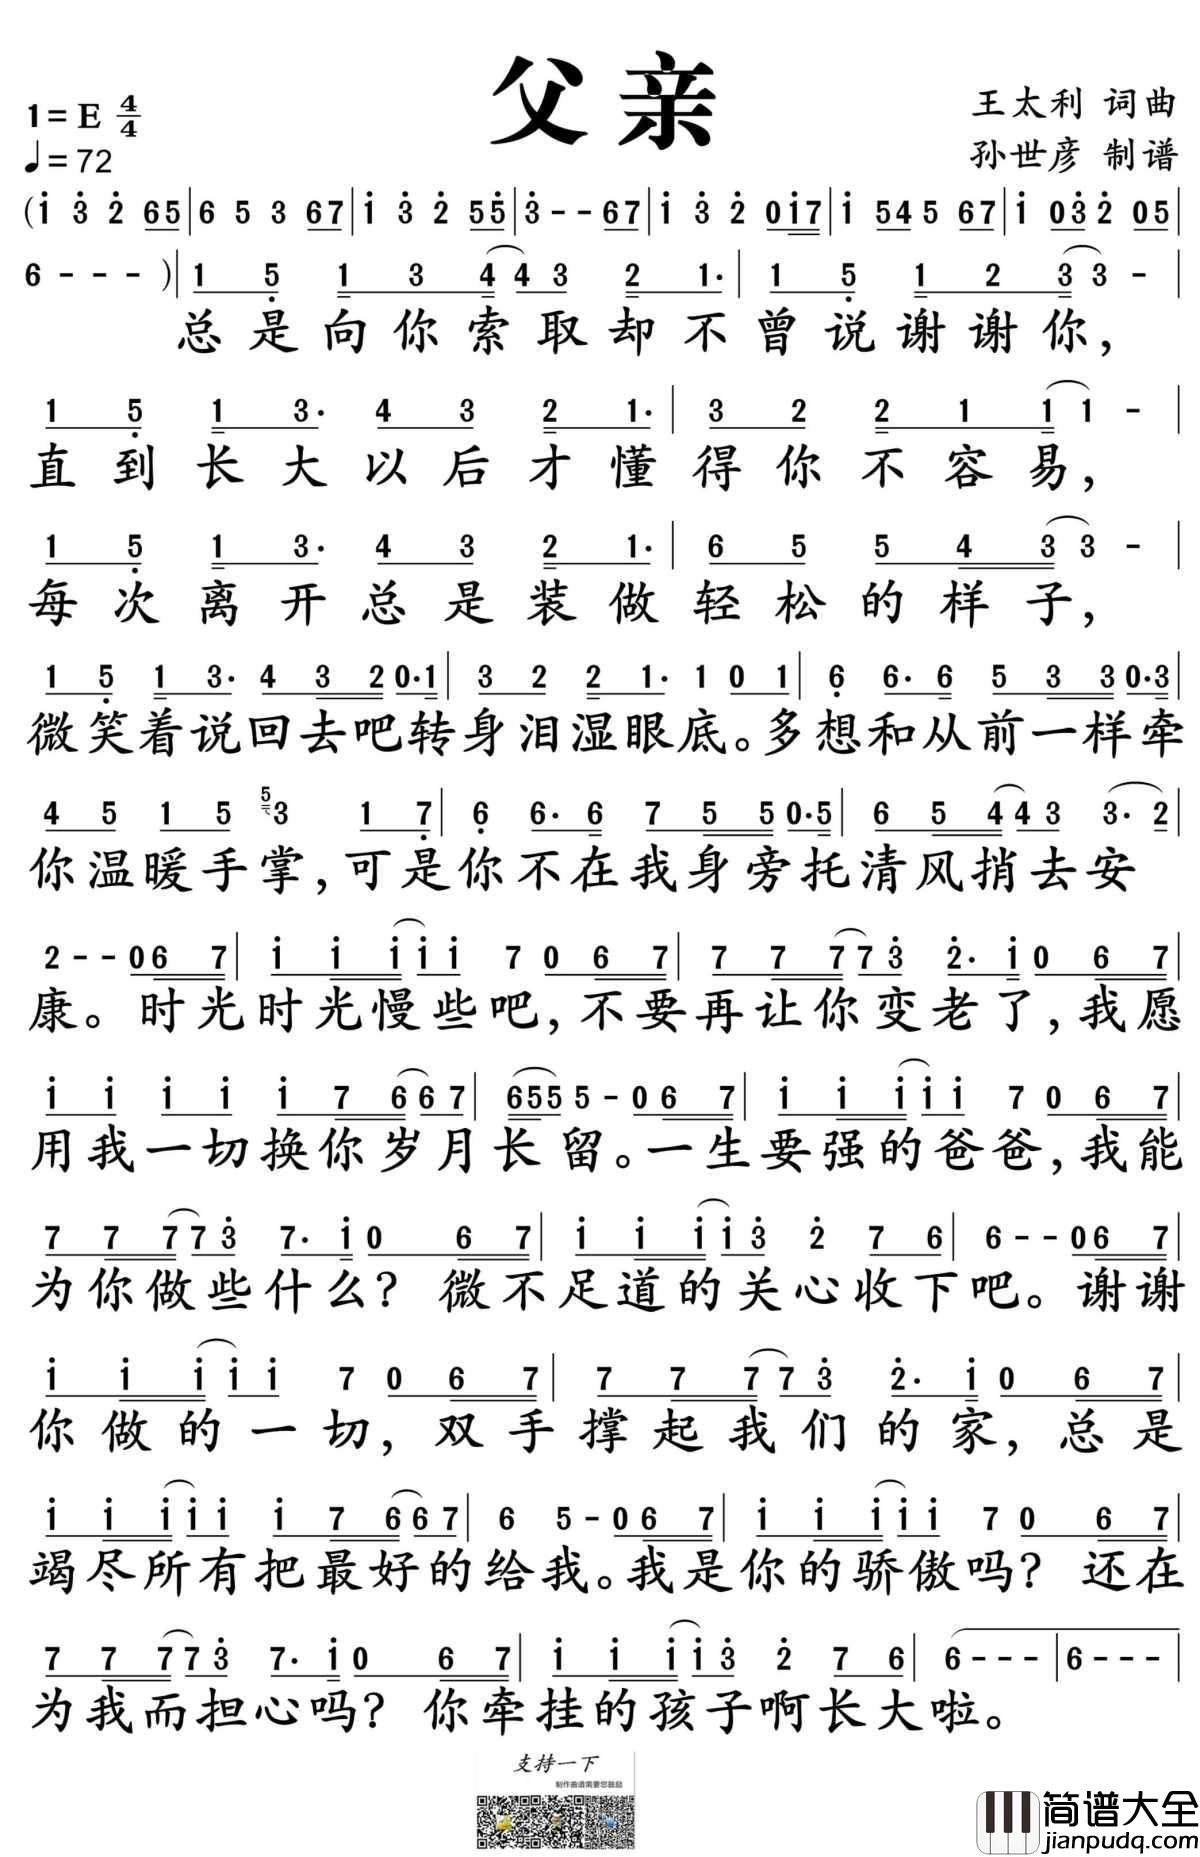 父亲
1=E 4/4
♩=72
王太利 词曲
孙世彦 制谱
(i 3 2 65|6 5 3 67|i 3 2 55|3--67|i 3 2 0i7|i 54 5 67|i 03 2 05|
6---)|1 5 1 3 4 4 3 2 1·|1 5 1 2 3 3 -|
总是向你索取却不曾说谢谢你，
1 5 1 3· 4 3 2 1·|3 2 2 1 1 1 -|
直到长大以后才懂得你不容易，
1 5 1 3· 4 3 2 1·|6 5 5 4 3 3 -|
每次离开总是装做轻松的样子，
1 5 1 3· 4 3 2 0·1|3 2 2 1· 1 0 1|6 6·6 5 3 3 0·3|
微笑着说回去吧转身泪湿眼底。多想和从前一样牵
4 5 1 5 5 3 1 7|6 6·6 7 5 5 0·5|6 5 4 4 3 3·2|
你温暖手掌，可是你不在我身旁托清风捎去安
2--06 7|i i i i i 7 0 6 7|7 7 7 7 3 2·i 0 6 7|
康。时光时光慢些吧，不要再让你变老了，我愿
i i i i i 7 6 6 7|655 5-06 7|i i i i i 7 0 6 7|
用我一切换你岁月长留。一生要强的爸爸，我能
7 7 7 7 3 7·i 0 6 7|i i i i 3 2 7 6|6--06 7|
为你做些什么？微不足道的关心收下吧。谢谢
i i i i i 7 0 6 7|7 7 7 7 3 2·i 0 6 7|
你做的一切，双手撑起我们的家，总是
i i i i i i 7 6 6 7|6 5-06 7|i i i i i 7 0 6 7|
竭尽所有把最好的给我。我是你的骄傲吗？还在
7 7 7 7 3 7·i 0 6 7|i i i i 3 2 7 6|6---|6---|
为我而担心吗？你牵挂的孩子啊长大啦。
支持一下
制作曲谱需要您鼓励
简谱大全
jianpudq.com